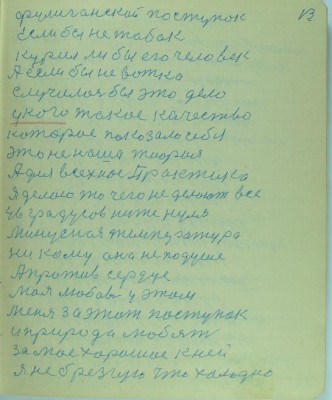 13
фулиганской поступок
Если бы не табак
курил ли бы его человек
А если бы не вотка
случилася бы это дело
у кого такое качество
которое показало себя
это не наша тиория
А для всех нас Практика
я делаю то чего не делают все
46 градусов ниже нуля
минусная температура
ни кому она не подуше
А против сердце
моя любовь у этом
меня за этот поступок
и природа любят
за мое хорошое к ней
я не брезгую что холодно